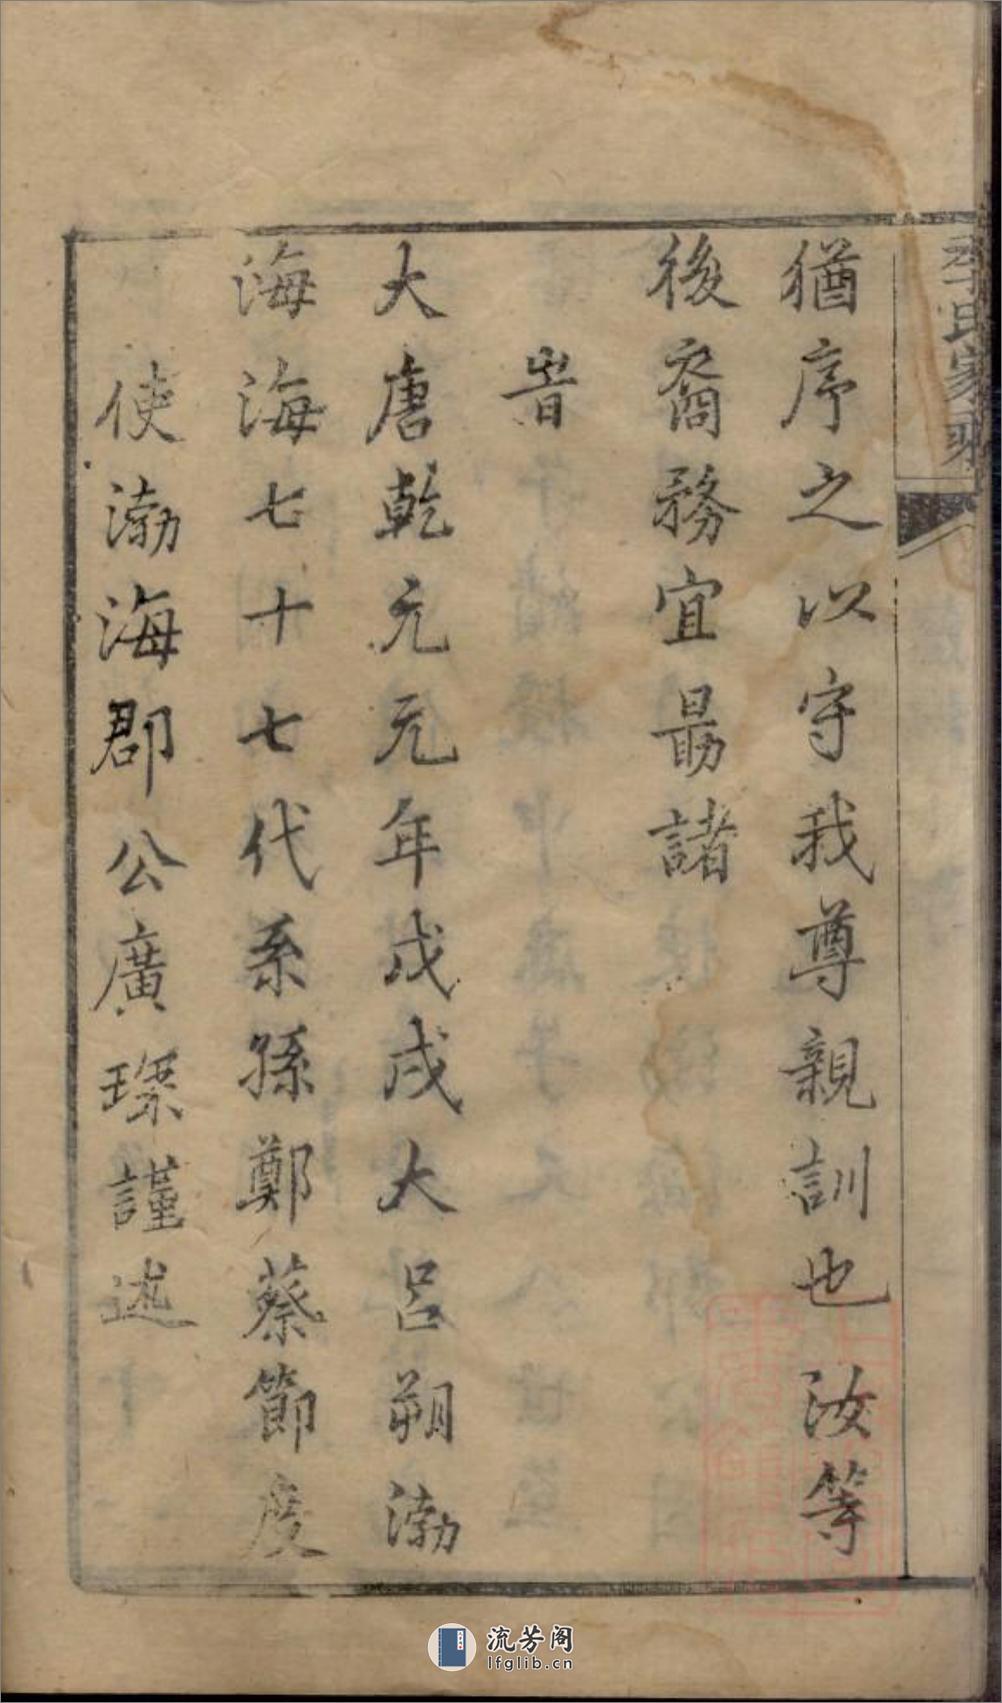 季氏家乘
猶序之以守我尊親訓也汝等
後裔務宜勗諸
旹
大唐乾元元年戊戌大呂朔渤
海海七十七代系孫鄭蔡節度
使渤海郡公廣琛謹述
流芳阁
lfglib.cn